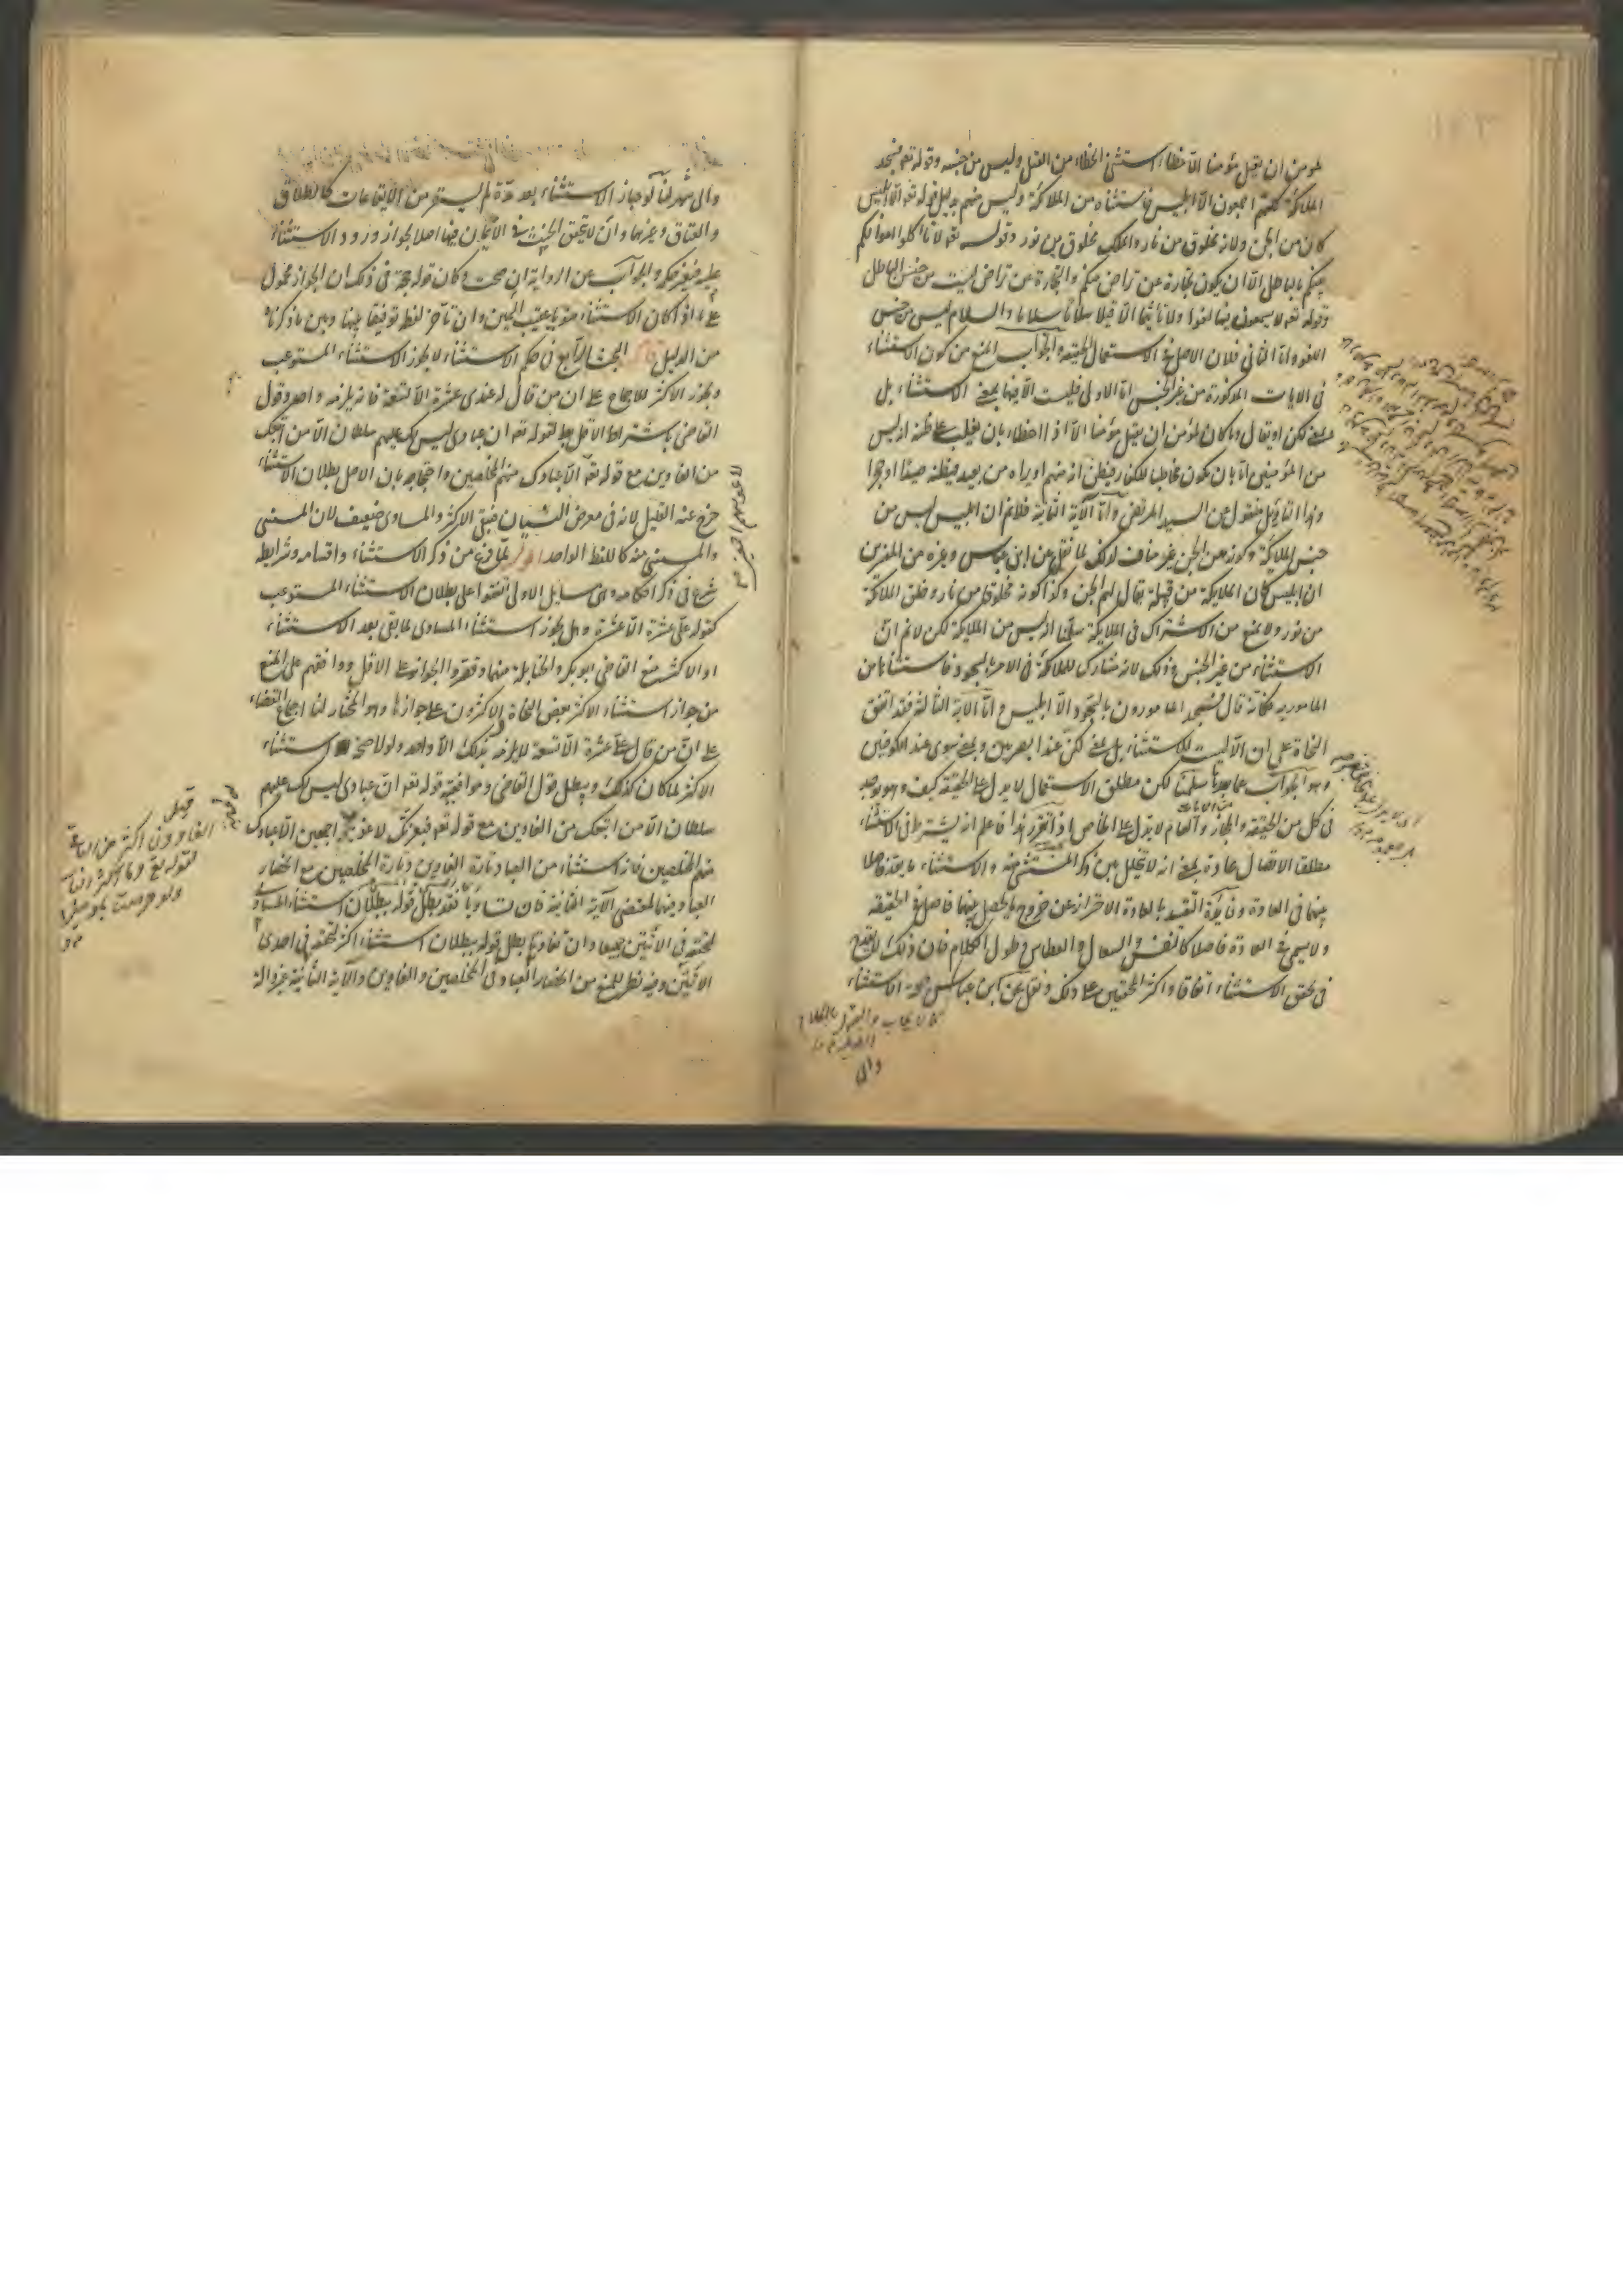 لمومن ان يقتل مؤمنا الا خطاء استثنى الخطاء من القتل وليس من جنسه وقوله تعه فسجد
الملائكة كلهم اجمعون الا ابليس فاستثناه من الملائكة وليس منهم بدليل قوله تعه الا ابليس
كان من الجن ولانه مخلوق من نار والملك مخلوق من نور وقوله تعه لا تاكلوا اموالكم
بينكم بالباطل الا ان يكون تجارة عن تراض منكم والتجارة عن تراض ليست من جنس الباطل
وقوله تعه لا يسمعون فيها لغوا ولا تاثيما الا قيلا سلاما سلاما والسلام ليس من جنس
اللغو واما الثاني فلان الاصل في الاستعمال الحقيقة والجواب المنع من كون الاستثناء
في الايات المذكورة من غير الجنس اما الاولى فليست الا فيها بمعنى الاستثناء بل
بمعنى لكن او يقال وما كان لمؤمن ان يقتل مؤمنا الا اذا اخطاء بان يغلب على ظنه انه ليس
من المؤمنين اما بان يكون مخالطا للكفار فيظن انه منهم او يراه من بعيد فيظنه صيدا او حجرا
وهذا التاويل منقول عن السيد المرتضى واما الاية الثانية فلانم ان ابليس ليس من
جنس الملائكة وكونه من الجن غير مناف لذلك لما نقل عن ابن عباس وغيره من المفسرين
ان ابليس كان من الملايكة من قبيلة يقال لهم الجن وكذا كونه مخلوق من نار وخلق الملائكة
من نور ولا يمنع من الاشتراك في الملايكة سلمنا انه ليس من الملايكة لكن لانم ان
الاستثناء من غير الجنس وذلك لانه مشارك للملائكة في الامر بالسجود فاستثناه من
المامور به فكانه قال فسجد المامورون بالسجود الا ابليس واما الاية الثالثة فقد اتفق
النحاة على ان الا ليست للاستثناء بل بمعنى لكن عند البصريين وبمعنى سوى عند الكوفيين
وهو الجواب عما بعدها سلمنا لكن مطلق الاستعمال لا يدل على الحقيقة كيف وهو يوجد
في كل من الحقيقة والمجاز والعام لا يدل على الخاص اذا تقرر هذا فاعلم انه يشترط في الاستثناء
مطلقا الاتصال عادة بمعنى انه لا يتخلل بين ذكر المستثنى منه والاستثناء ما يعد فاصلا
بينهما في العادة وفائدة التقييد بالعادة الاحتراز عن خروج ما يحصل بينهما فاصل في الحقيقة
ولا يسمى في العادة فاصلا كالنفس والسعال والعطاس وطول الكلام فان ذلك لا يقدح
في تحقق الاستثناء اتفاقا واكثر المحققين على ذلك ونقل عن ابن عباس صحة الاستثناء
والى
والى شهر لنا لو جاز الاستثناء بعد مدة لم يستقر من الايقاعات كالطلاق
والعتاق وغيرهما وان لا يتحقق الحنث في الايمان فيها اصلا لجواز ورود الاستثناء
عليه فيتغير حكمه والجواب عن الرواية ان صحت وكان قوله حجة في ذلك ان الجواز محمول
على ما اذا كان الاستثناء منويا عقيب اليمين وان تاخر لفظه توفيقا بينها وبين ما ذكرناه
من الدليل قال البحث الرابع في حكم الاستثناء لا يجوز الاستثناء المستوعب
ويجوز الاكثر للاجماع على ان من قال له عندي عشرة الا تسعة فانه يلزمه واحد وقول
القاضي باشتراط الاقل يبطله قوله تعه ان عبادي ليس لك عليهم سلطان الا من اتبعك
من الغاوين مع قوله تعه الا عبادك منهم المخلصين واحتجاجه بان الاصل بطلان الاستثناء
خرج عنه القليل لانه في معرض النسيان فيبقى الاكثر والمساوي ضعيف لان المستثنى
والمستثنى منه كاللفظ الواحد اقول لما فرغ من ذكر الاستثناء واقسامه وشرايطه
شرع في ذكر احكامه وهي مسايل الاولى اتفقوا على بطلان الاستثناء المستوعب
كقوله علي عشرة الا عشرة وهل يجوز استثناء المساوي لما بقي بعد الاستثناء
او الاكثر منع القاضي ابو بكر والحنابلة منهما وقصروا الجواز على الاقل ووافقهم على المنع
من جواز استثناء الاكثر بعض النحاة والاكثرون على جوازها وهو المختار لنا اجماع الفقهاء
على ان من قال علي عشرة الا تسعة لا يلزمه بذلك الا واحد ولولا صحة استثناء
الاكثر لما كان كذلك ويبطل قول القاضي وموافقيه قوله تعه ان عبادي ليس لك عليهم
سلطان الا من اتبعك من الغاوين مع قوله تعه فبعزتك لاغوينهم اجمعين الا عبادك
منهم المخلصين فانه استثناء من العباد تارة الغاوين وتارة المخلصين مع انحصار
العباد فيهما لمقتضى الاية الثانية فان تساويا فقد بطل قوله ببطلان استثناء المساوي
لتحققه في الايتين جميعا وان تفاوتا بطل قوله ببطلان استثناء الاكثر لتحققه في احدى
الايتين وفيه نظر للمنع من انحصار العباد في المخلصين والغاوين والاية الثانية غير دالة
لاغوينهم اجمعين
قيل
الغاوون اكثر من الناس
لقوله تع وما اكثر الناس
ولو حرصت بمومنين